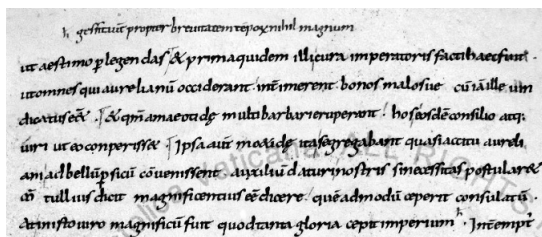 h gessit aut propter brevitatem tempoꝝ nihil magnum
ut aestimo p legendas & prima quidem illi cura imperatoris facti haec fuit
ut omnes qui aurelianū occiderant inte᷑imerent bonos malosue cū iā ille uin
dicatus eēt & qm̄ a maeotide multi barbari eruperant hos eosdē consilio atq;
uiri ut eo conperisse Ipsa aut maeotide ita se gregabant quasi accitu aureli
ani ad bellū psicū conuenissent auxiliū daturi nostris si necessitas postular&
M tullius dicit magnificentius eē dicere quē ad modū ceperit consulatū
At in isto uiro magnificū fuit quod tanta gloria cepit imperium h Inempt